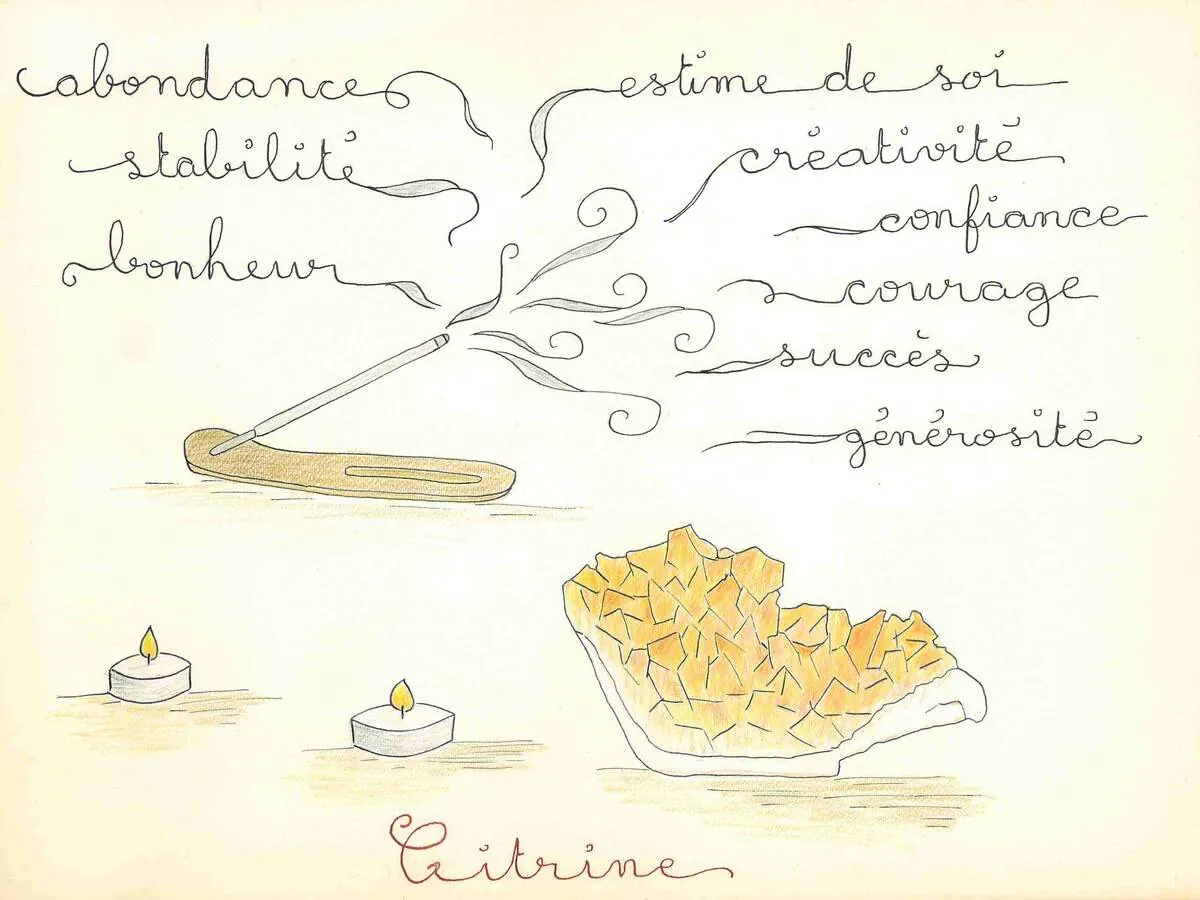 abondance
stabilité
bonheur
estime de soi
créativité
confiance
courage
succès
générosité
Citrine